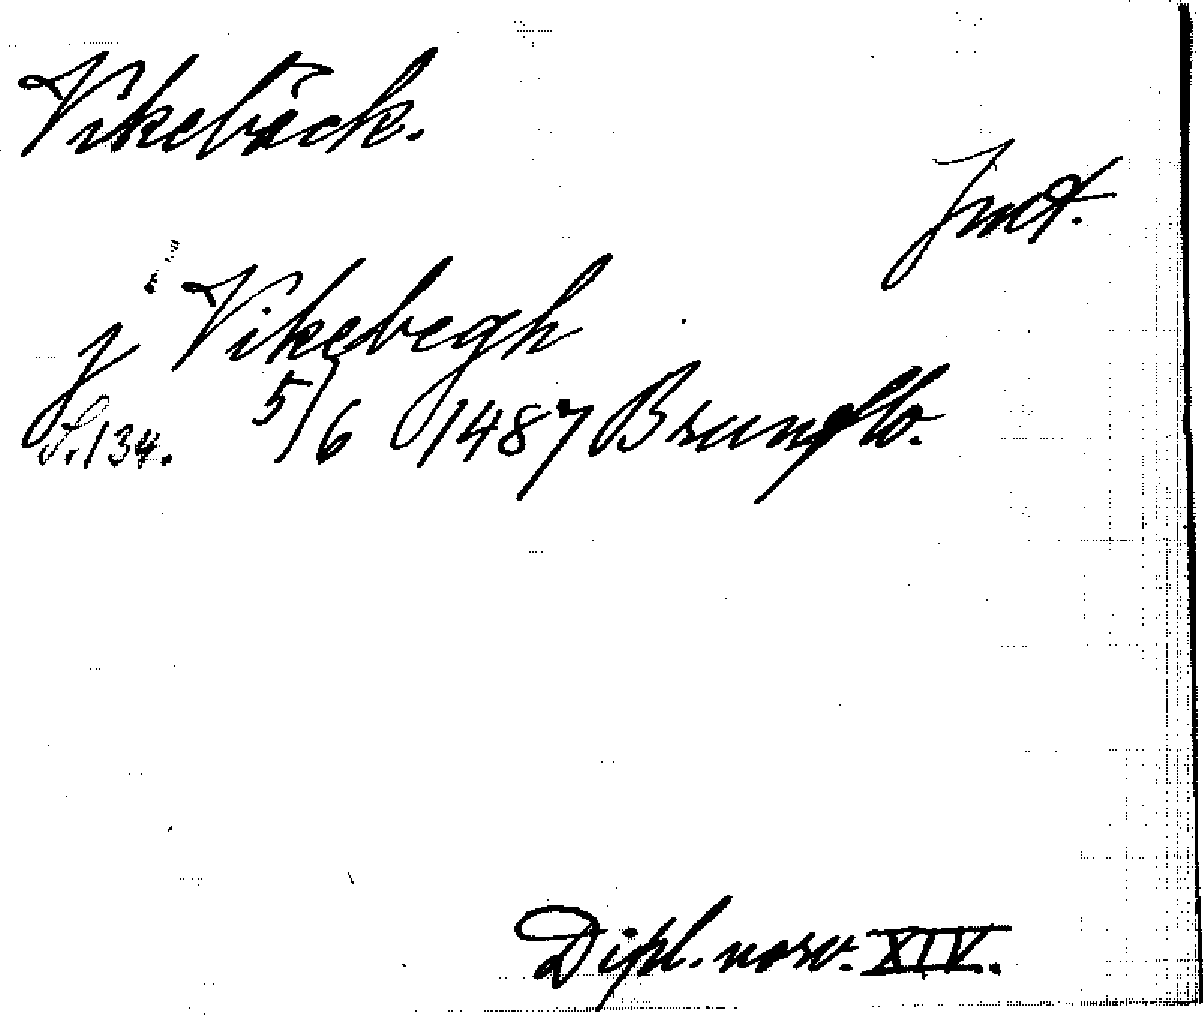 Vikebäck.
Jmt.
j Vikebegh
S. 134. 5/6 1487 Brunflo.
Dipl. norv. XIV.